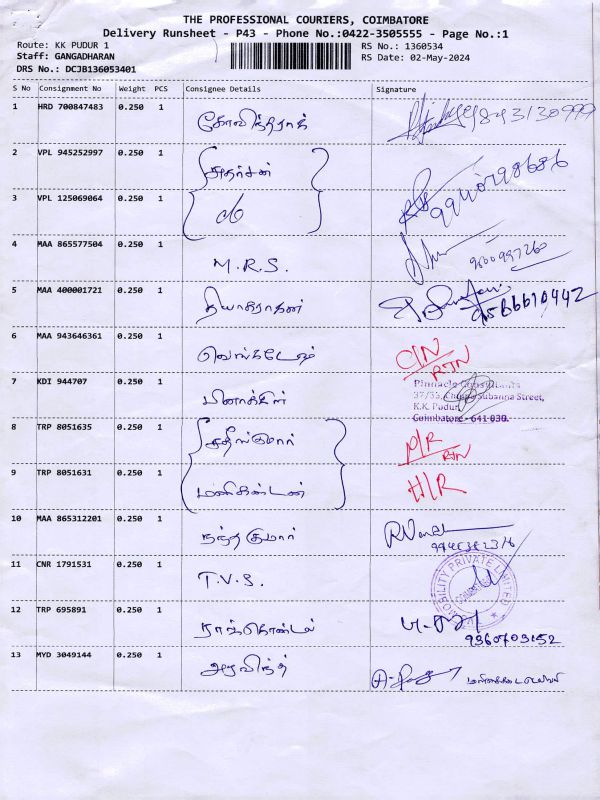 THE PROFESSIONAL COURIERS, COIMBATORE
Delivery Runsheet - P43 - Phone No.:0422-3505555 - Page No.:1
Route: KK PUDUR 1
RS No.: 1360534
Staff: GANGADHARAN
RS Date: 02-May-2024
DRS No.: DCJB136053401
S No Consignment No Weight PCS Consignee Details Signature
1 HRD 700847483 0.250 1
கோவிந்தராஜ்
2 VPL 945252997 0.250 1
சுதர்சன்
3 VPL 125069064 0.250 1
c/o
4 MAA 865577504 0.250 1
M.R.S.
5 MAA 400001721 0.250 1
தியாகராஜன் 9566610442
6 MAA 943646361 0.250 1
வெங்கடேஷ் RTN
7 KDI 944707 0.250 1
Pinnacle Consultants
Subanna Street,
K.K. Pudur,
Coimbatore - 641 030.
8 TRP 8051635 0.250 1
சதீஸ்குமார் RTN
9 TRP 8051631 0.250 1
மணிகண்டன்
10 MAA 865312201 0.250 1
நந்தகுமார்
11 CNR 1791531 0.250 1
T.V.S. MOBILITY PRIVATE LIMITED
12 TRP 695891 0.250 1
9360703152
13 MYD 3049144 0.250 1
அரவிந்த்